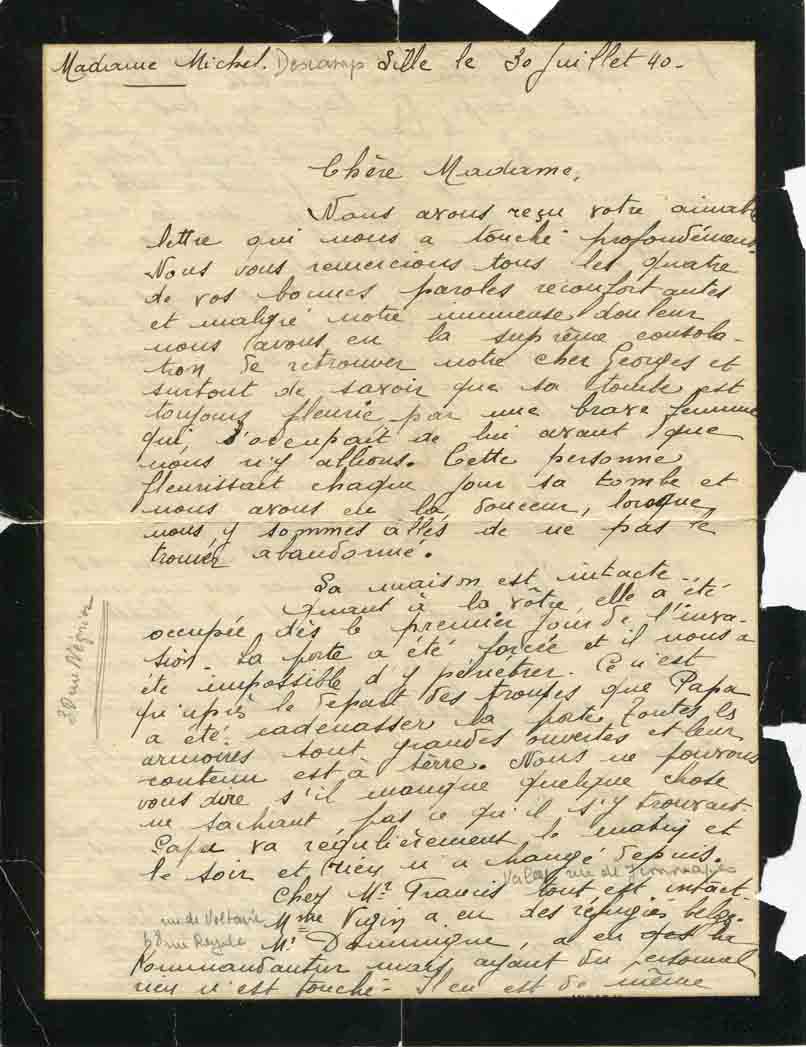 Madame Michel. Descamp Lille le 30 Juillet 40-
Chère Madame,
Nous avons reçu votre aimable
lettre qui nous a touché profondément.
Nous vous remercions tous les quatre
de vos bonnes paroles réconfortantes
et malgré notre immense douleur
nous avons eu la suprême consola-
tion de retrouver notre cher Georges et
surtout de savoir que sa tombe est
toujours fleurie par une brave femme
qui s'occupait de lui avant que
nous n'y allions. Cette personne
fleurissait chaque jour sa tombe et
nous avons eu la douceur, lorsque
nous y sommes allés de ne pas le
trouver abandonné.
Sa maison est intacte-
Quant à la vôtre, elle a été
occupée dès le premier jour de l'inva-
sion- La porte a été forcée et il nous a
été impossible d'y pénétrer. Ce n'est
qu'après le départ des troupes que Papa
a été cadenasser la porte. Toutes les
armoires sont grandes ouvertes et leur
contenu est à terre. Nous ne pouvons
vous dire s'il manque quelque chose
ne sachant pas ce qu'il s'y trouvait-
Papa va régulièrement le matin et
le soir et rien n'a changé depuis.
rue de
Chez Mr Francis tout est intact-
rue de Voltaire
Mme Vigin a eu des réfugiés belges.
68 rue
Mr Dominique, a eu la
Kommandantur mais ayant du personnel
rien n'est touché- Il en est de même
rue Négrier